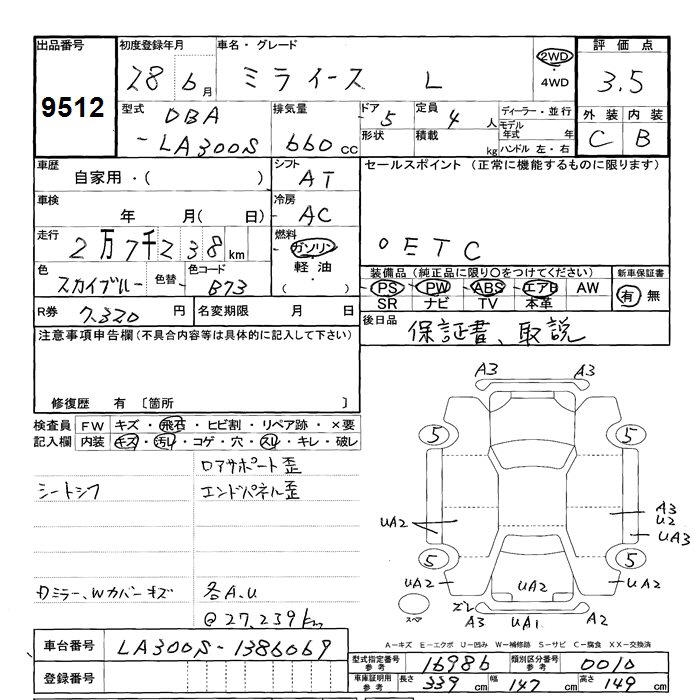 出品番号
9512
初度登録年月
28年 6月
車名・グレード
ミライース L
2WD
・
4WD
評価点
3.5
型式
DBA
-LA300S
排気量
660 cc
ドア
5
定員
4 人
形状
積載
kg
ディーラー・並行
モデル年式 年
ハンドル 左・右
外装 内装
C B
車歴
自家用・( )
シフト
AT
セールスポイント (正常に機能するものに限ります)
車検
年 月( 日)
冷房
AC
走行
2万7千238 km
燃料
ガソリン
軽油
・( )
○ETC
色
スカイブルー
色替
色コード
B73
装備品 (純正品に限り○をつけてください)
PS PW ABS エアB AW
SR ナビ TV 本革
新車保証書
有 無
R券 7.320 円
名変期限 月 日
後日品
保証書、取説
注意事項申告欄 (不具合内容等は具体的に記入して下さい)
修復歴 有 〔箇所 〕
検査員記入欄
FW キズ・飛石・ヒビ割・リペア跡・×要
内装 キズ・汚レ・コゲ・穴・スレ・キレ・破レ
ロアサポート歪
シートシワ
エンドパネル歪
Dミラー、Wカバーキズ
各A.U
@27,239km
A3 A3
5 5
UA2
A3
U2
UA3
5 5
UA2 UA2 UA2
スペア
ズレ
A3 UA1 A2
A-キズ E-エクボ U-凹み W-補修跡 S-サビ C-腐食 XX-交換済
車台番号
LA300S-1386069
登録番号
型式指定番号参考
16986
類別区分番号参考
0010
車庫証明用参考
長さ 339 cm 幅 147 cm 高さ 149 cm